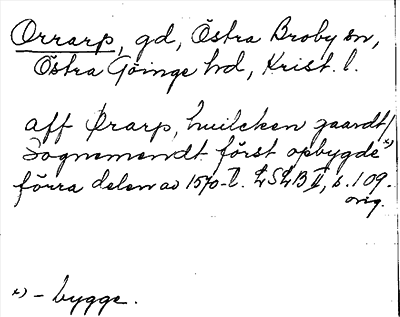 Orrarp, gd, Östra Broby sn,
Östra Göinge hd, Krist. l.
aff Ørarp, huilcken gaardt/
Sognemendt først opbygde x)
förra delen av 1570-t. LSLB II, s. 109.
orig.
x) - bygge.